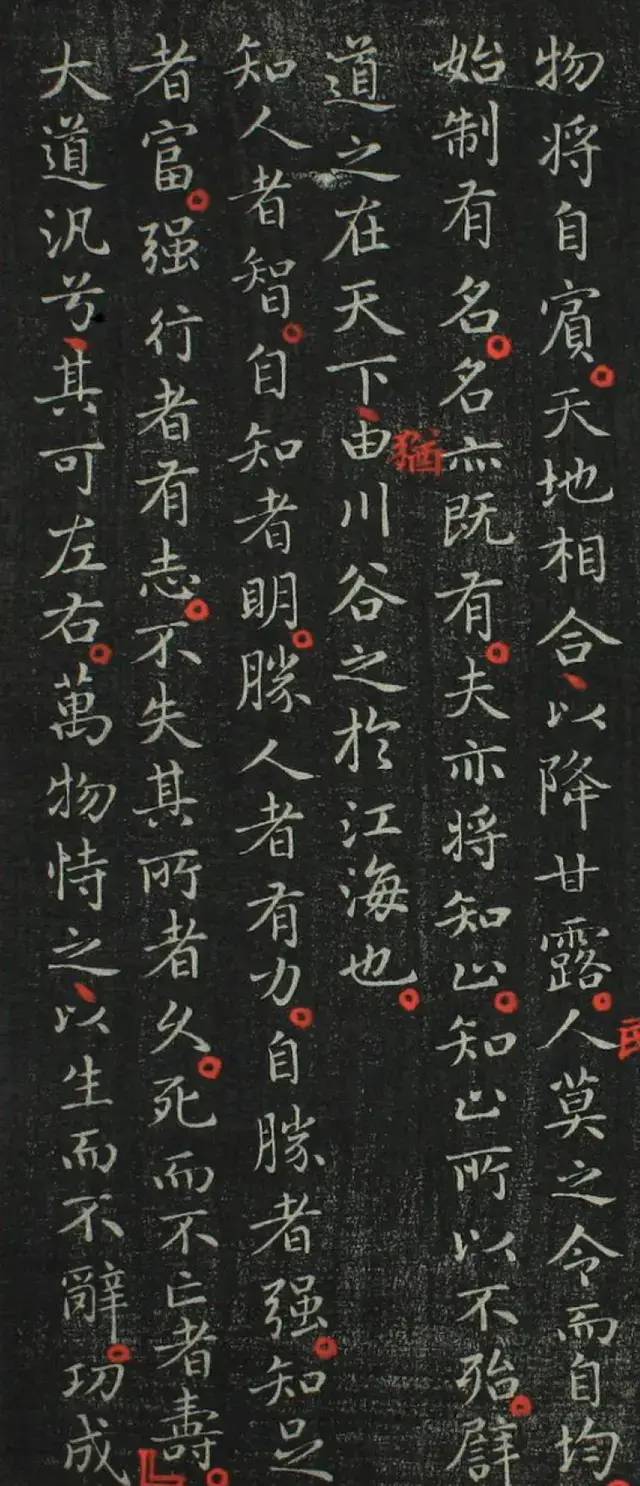 物将自賓。天地相合、以降甘露。人莫之令而自均。
民
始制有名。名亦既有。夫亦将知止。知止所以不殆。譬
道之在天下、由川谷之於江海也。
猶
知人者智。自知者明。勝人者有力。自勝者强。知足
者富。强行者有志。不失其所者久。死而不亡者壽。
大道汎兮、其可左右。萬物恃之、以生而不辭。功成